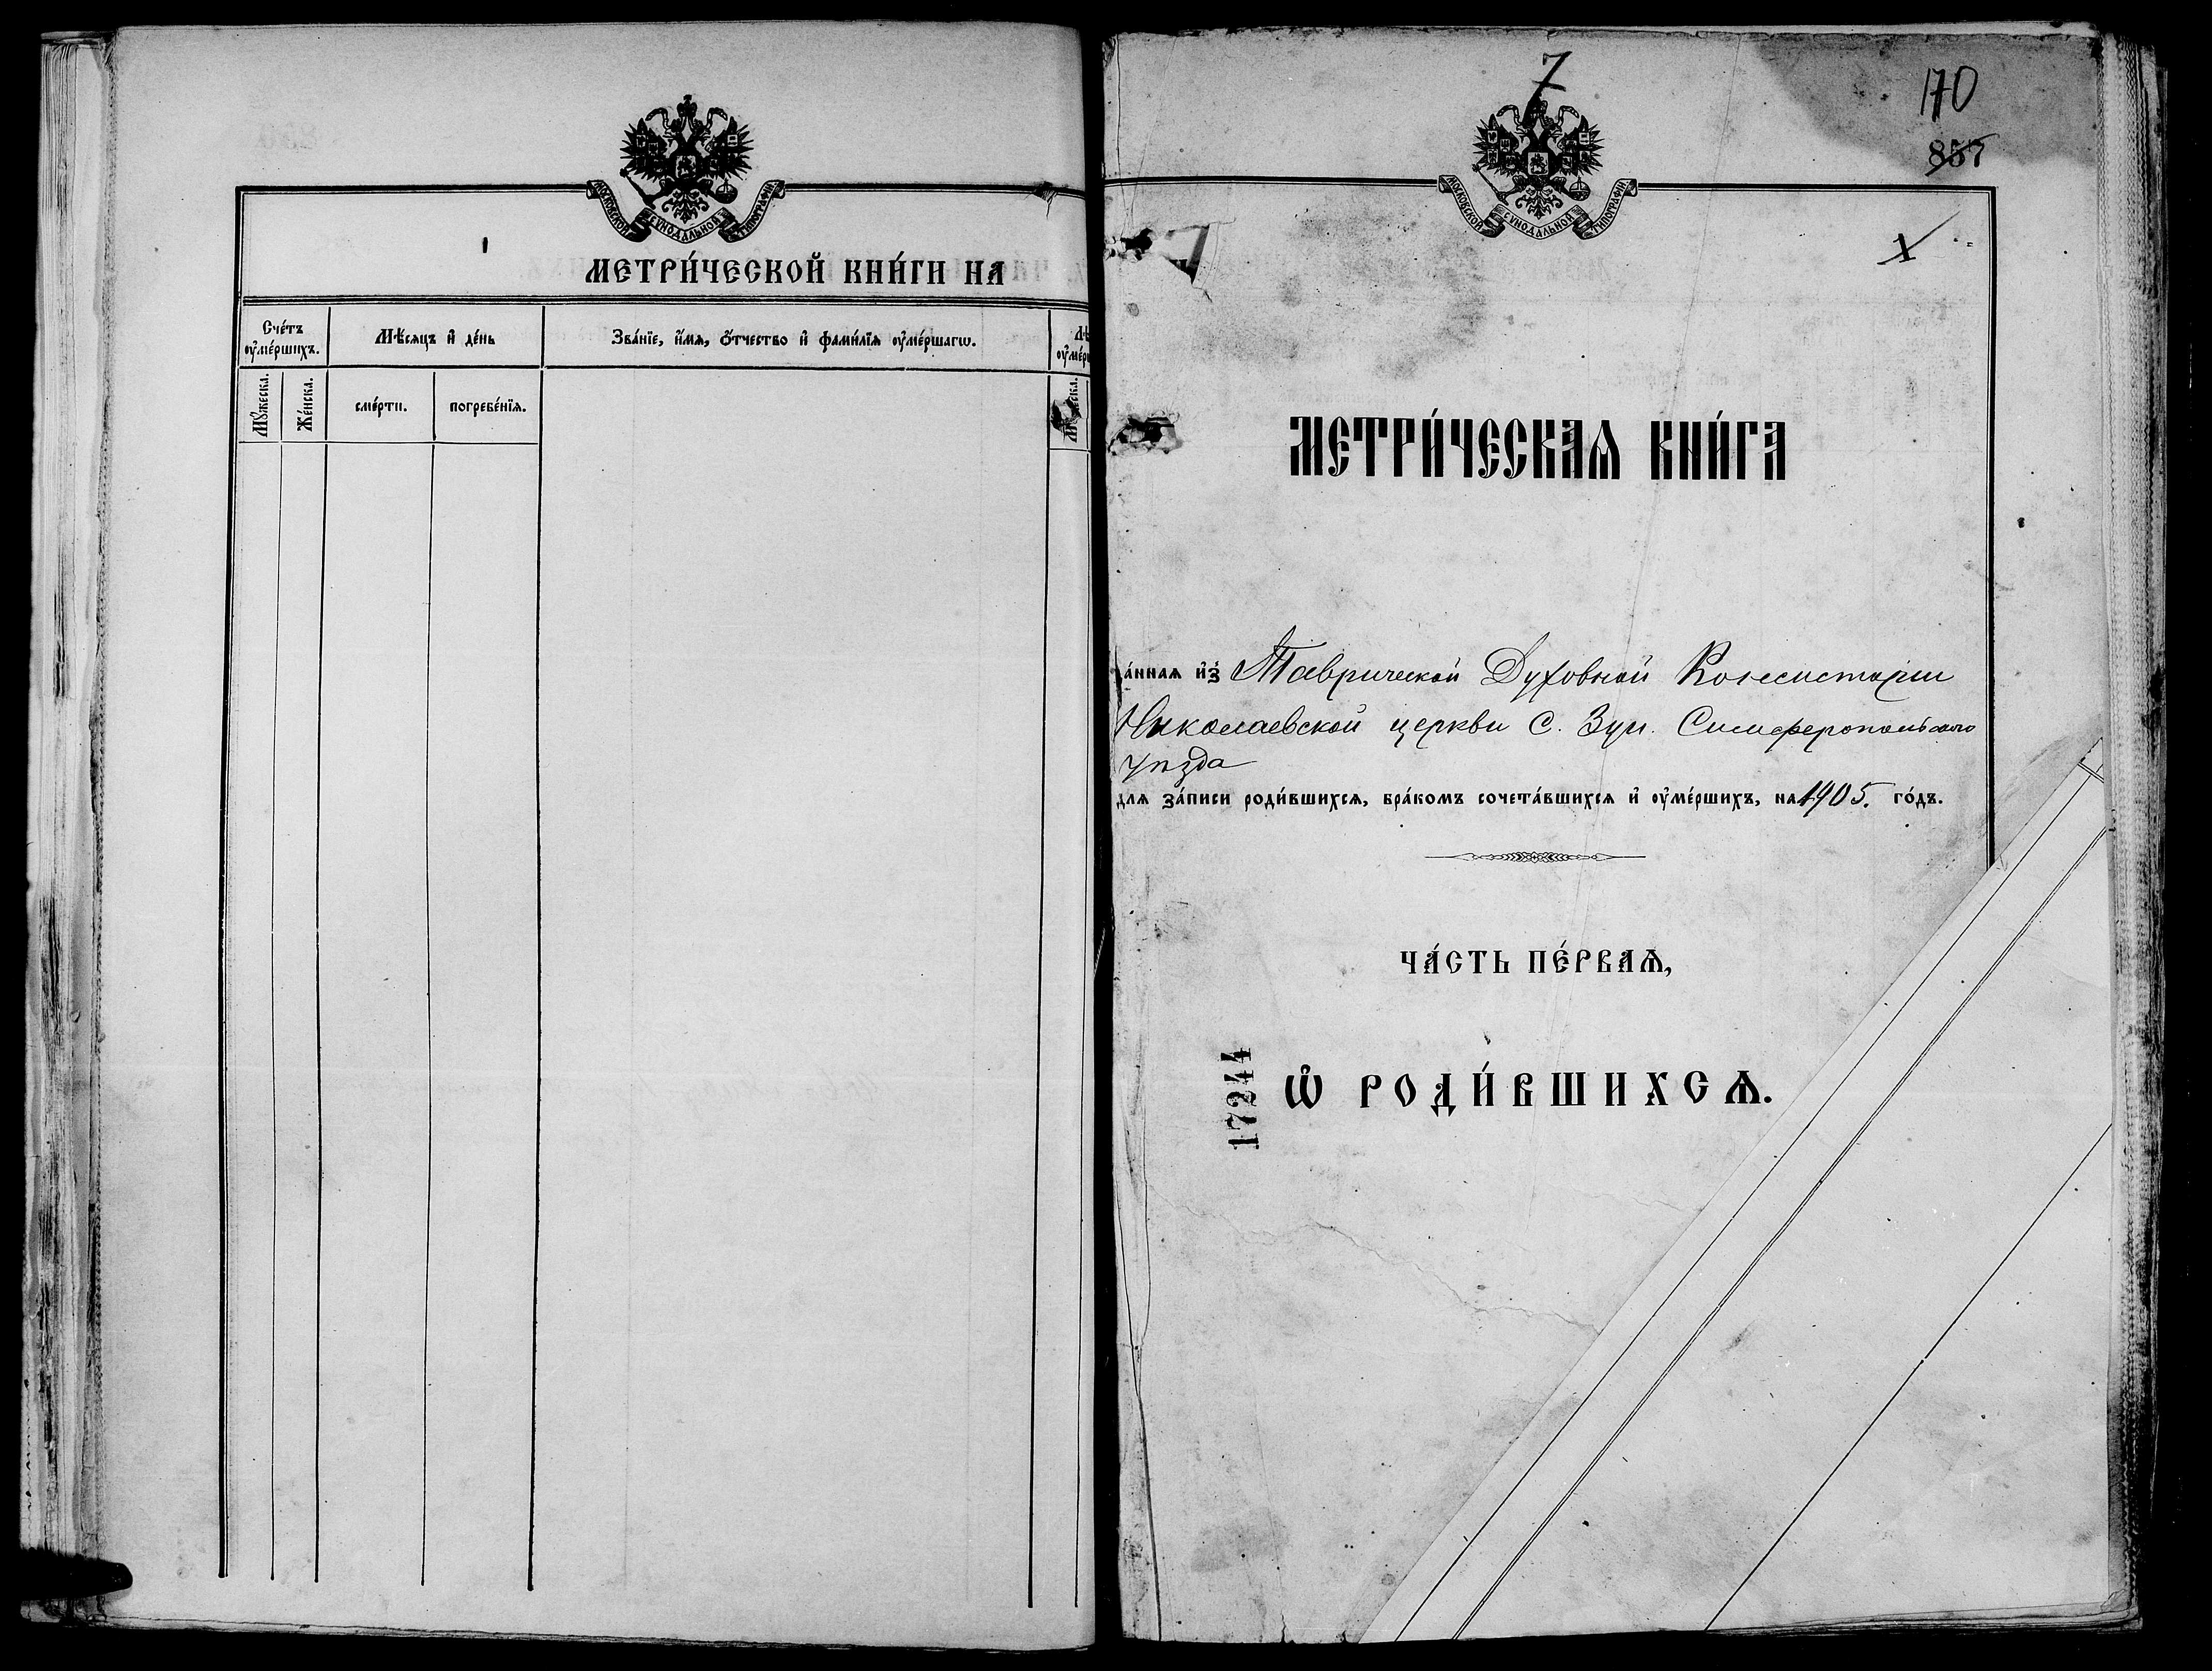 МОСКОВСКОЙ СУНОДАЛЬНОЙ ТИПОГРАФІИ
МЕТРИ́ЧЕСКОЙ КНИ́ГИ НА
Сче́тъ ᲂу҆ме́ршихъ.
Мѣ́сяцъ и҆ де́нь
Зва́нїе, и҆́мѧ, ѻ҆́тчество и҆ фами́лїѧ ᲂу҆ме́ршагѡ.
Мꙋ́жеска.
Же́нска.
сме́рти.
погребе́нїѧ.
7
170
857
МОСКОВСКОЙ СУНОДАЛЬНОЙ ТИПОГРАФІИ
1
МЕТРИ́ЧЕСКАѦ КНИ́ГА
а́ннаѧ и҆з̾ Таврической Духовной Консисторіи
Николаевской церкви с. Зуи. Симферопольского
уѣзда
для за́писи роди́вшихсѧ, бра́комъ сочета́вшихсѧ и҆ ᲂу҆ме́ршихъ, на 1905. го́дъ.
ЧА́СТЬ ПЕ́РВАѦ,
Ѡ҆ РОДИ́ВШИХСѦ.
17244